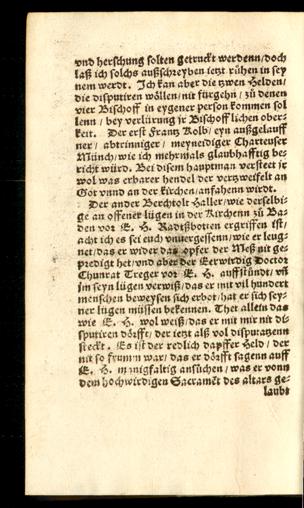 vnd herschung solten getruckt werdenn/doch
laß ich solchs außschreyben ietzt rühen in sey
nem werdt. Ich kan aber die tzwen Helden/
die disputiren wöllen/nit fürgehn/ zů denen
vier Bischoff in eygener person kommen sol
lenn/ bey verlürung ir Bischofflichen ober-
keit. Der erst Frantz Kolb/ eyn außgelauff
ner/ abtrinniger/ meyneidiger Charteuser
Münch/wie ich mehrmals glaubhafftig be-
richt würd. Bei disem hauptman versteet ir
wol was erbarer hendel der vertzweifelt an
Got vnnd an der kirchen/anfahenn wirdt.
Der ander Berchtolt Haller/wie derselbi-
ge an offener lügen in der Kirchenn zů Ba-
den vor E. H. Radtßbotten ergriffen ist/
acht ich es sei euch vnuergessenn/wie er leug-
net/das er wider das opfer der Meß nit ge-
predigt het/vnd aber der Eerwirdig Doctor
Chunrat Treger vor E. H. auffstůndt/ vñ
jm seyn lügen verwiß/das er mit vil hundert
menschen beweysen sich erbot/hat er sich sey-
ner lügen müssen bekennen. Thet allein das
wie E. H. wol weiß/das er mit mir nit di-
sputiren dörfft/ der ietzt alß vol disputatzenn
steckt. Es ist der redlich dapffer Held/ der
nit so frumm war/das er dörfft sagenn auff
E. H. manigfaltig ansůchen/was er vonn
dem hochwirdigen Sacramēt des altars ge-
laubt